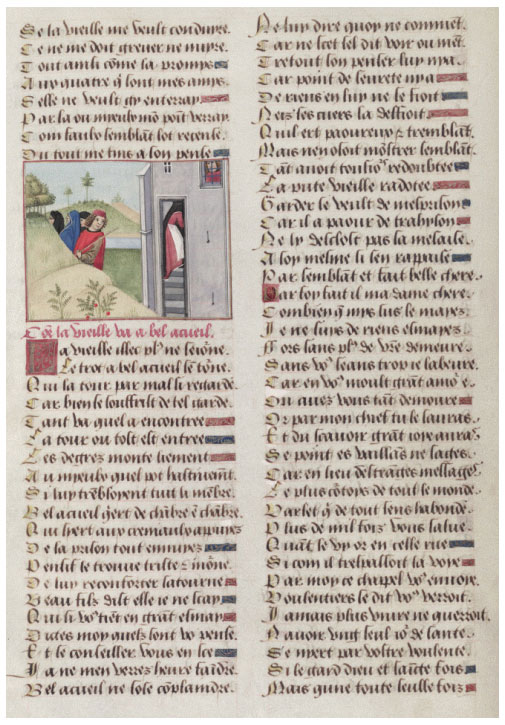 Se la vieille me veult conduire.
Ce ne me doit grever ne nuyre.
Tout ainsi cõme la promps
A vo quatre q̃ sont mes amps.
Selle ne veult g'y enterray
Par la ou mieulx mõ põt verray.
Com faulx semblãt sot recense.
Du tout me tins a son pense
Cõe la vieille va a bel acueil.
La vieille illec pl9 ne seiõne.
Le trot a bel acueil se tõne.
Qui la tour par mal si regarde.
Car bien se souffrist de tel garde.
Tant va quel a encontree
La tour ou tost est entree
Les degrez monte liement
Au mieulx quel pot hastiuemt.
Si luy trẽbloyent tuit li mẽbre.
Bel acueil q̃ert de chãbre ẽ chãbre.
Qui sert aux creneaulx appuyez
De la prison tout ennuyez
Pensif le trouue triste z mõne.
De luy reconforter satourne
Beau filz dist elle ie ne scay
Qui si vo9 tiẽt en grãt esmay
Dictes moy quelz sont vo pense.
Et se conseiller vous en sce
Ia ne men verrez heure faindre.
Bel acueil ne sose cõplaindre.
Ne luy dire quoy ne commẽt.
Car ne scet sel dit voir ou mẽt.
Trestout son penser luy nya.
Car point de seurete ny a
De riens en luy ne se fioit
Neiz ses cuers la deffioit.
Quil ert paoureux z tremblãt.
Mais nen osoit mõstrer semblãt.
Tãt auoit tousio9s redoubtee
La pute vieille radotee
Garder se veult de mesprison
Car il a paour de trahyson
Ne ly desclost pas sa mesaise.
A soy mesme si sen rappaise
Par semblãt et fait belle chere.
Par foy fait il ma dame chere.
Combien q̃ mys sus le mayez
Ie ne suis de riens esmayez
Fors sans pl9 de vr̃e demeure.
Sans vo9 ceans troy ie labeure.
Car en vo9 moult grãt amo9r e.
Ou auez vous tãt demoure
Or par mon chief tu le sauras.
Et du scauoir grãt ioye auras
Se point es vaillãs ne sages.
Car en lieu destrãges messages
Le plus cõtoys de tout le monde.
Varlet q̃ de tout sens habonde.
Plus de mil foiz vous salue.
Quãt le vy or en celle rue
Si com il trespassoit la voye
Par moy ce chappel vo9 enuoye.
Voulentiers se dit vo9 verroit.
Iamais plus viure ne querroit.
Nauoir vng seul io9r de sante.
Se nyert par vostre voulente.
Si le gard dieu et saicte fois
Mais quune toute seulle foiz